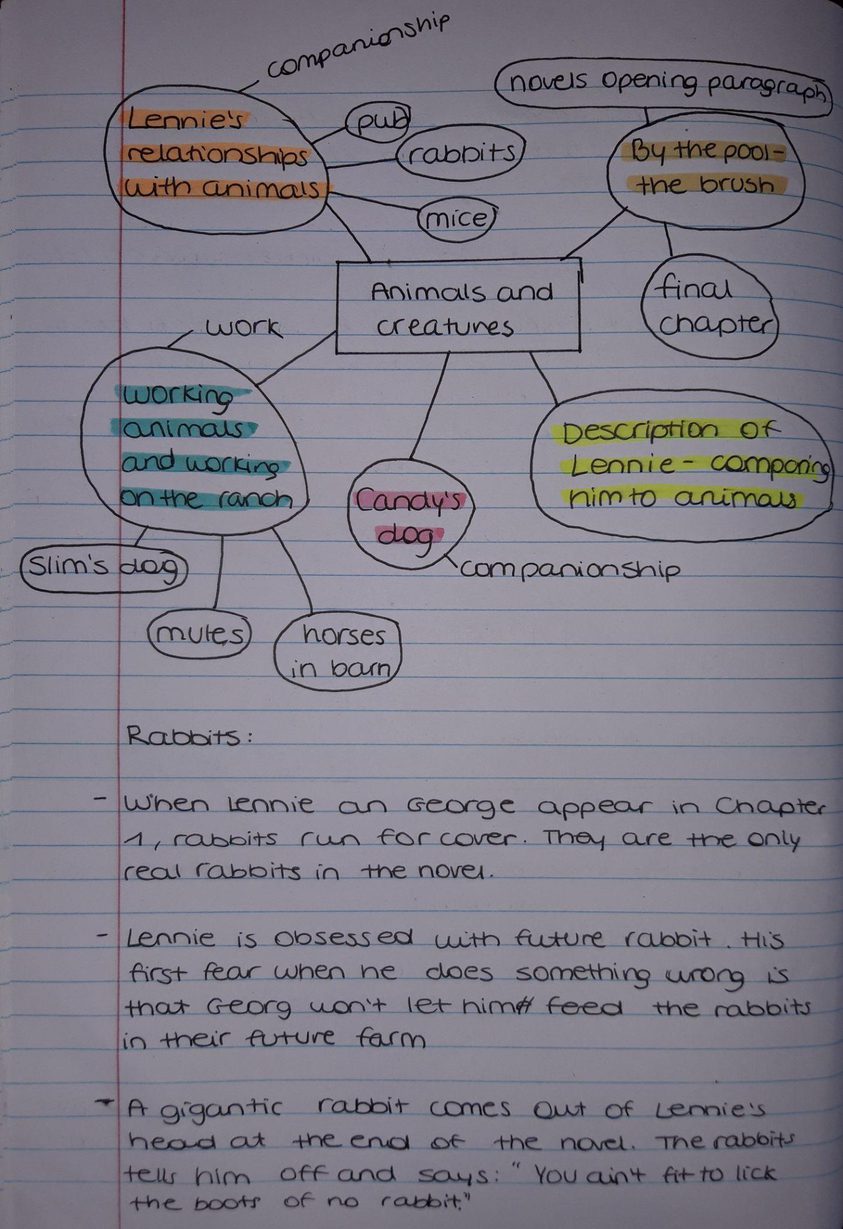 companionship
novels opening paragraph
Lennie's
relationships
with animals
pub
rabbits
mice
By the pool-
the brush
final
chapter
Animals and
creatures
work
working
animals
and working
on the ranch
Candy's
dog
companionship
Description of
Lennie - comparing
him to animals
Slim's dog
mules
horses
in barn
Rabbits:
- When Lennie an George appear in Chapter
1, rabbits run for cover. They are the only
real rabbits in the novel.
- Lennie is obsessed with future rabbit. His
first fear when he does something wrong is
that Georg won't let him feed the rabbits
in their future farm
- A gigantic rabbit comes out of Lennie's
head at the end of the novel. The rabbits
tells him off and says: "You ain't fit to lick
the boots of no rabbit."